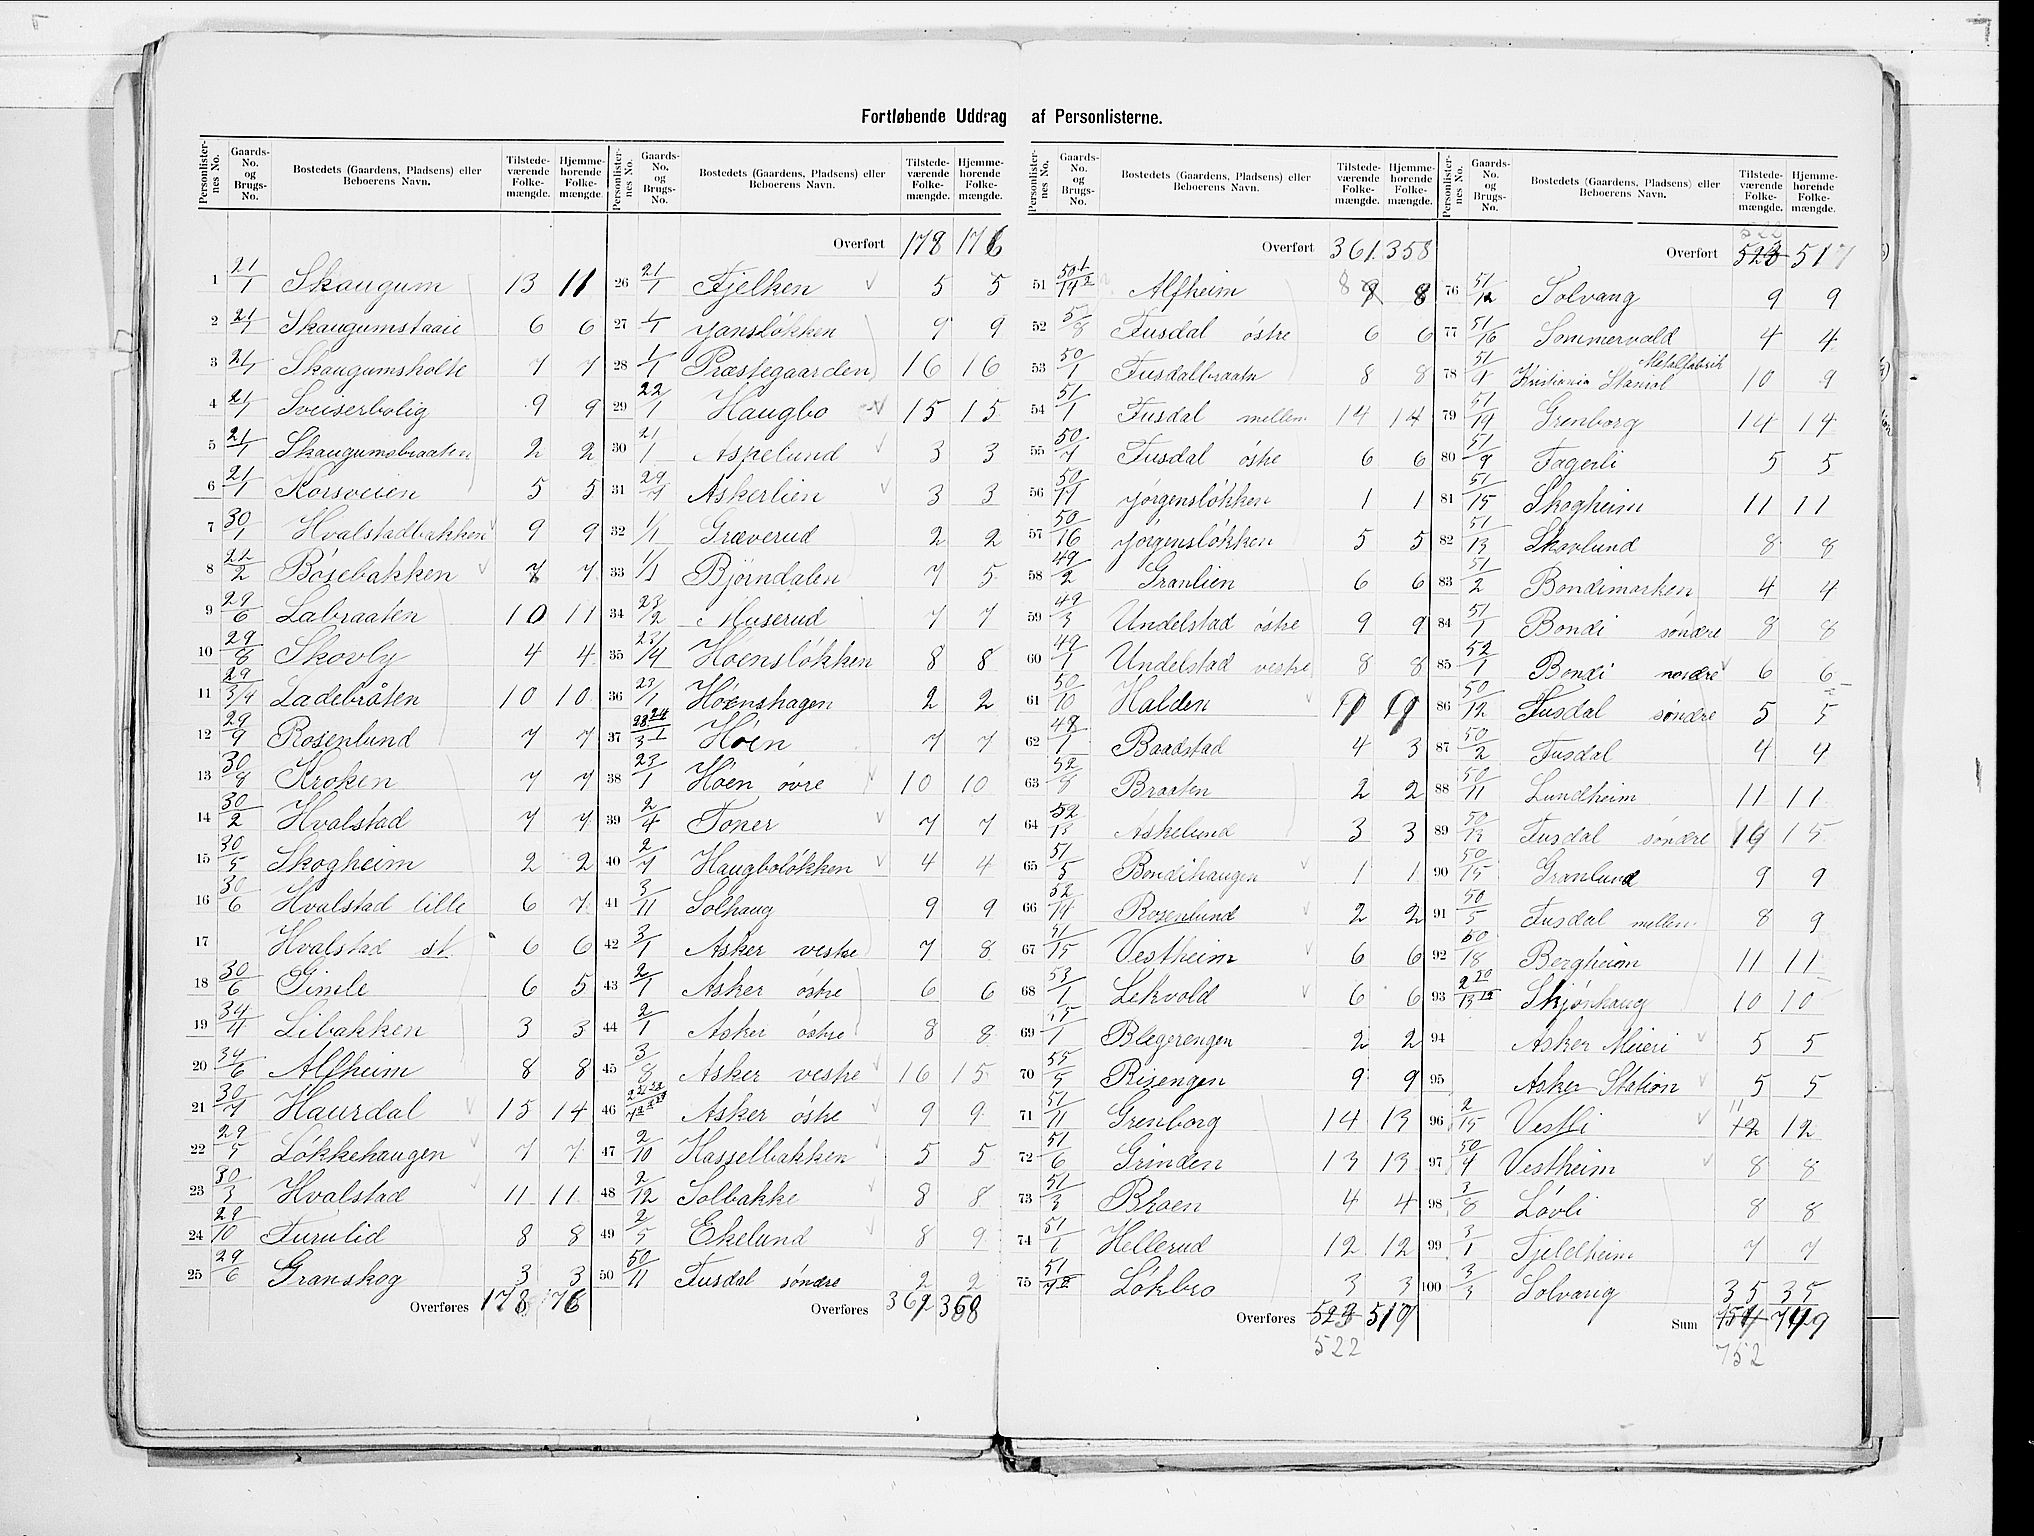 Fortløbende Uddrag af Personlisterne.
Personlisternes No. Gaards-No. og Brugs-No. Bostedets (Gaardens, Pladsens) eller Beboerens Navn. Tilstedeværende Folkemængde. Hjemmehørende Folkemængde.
1 21/1 Skaugum 13 11
2 21/1 Skaugumstaaie 6 6
3 21/1 Skaugumsholte 7 7
4 21/1 Sveiserbolig 9 9
5 21/1 Skaugumsbraaten 2 2
6 21/1 Korsveien 5 5
7 30/1 Hvalstadbakken 9 9
8 22/2 Bösebakken 7 7
9 29/6 Labraaten 10 11
10 29/8 Skovly 4 4
11 29/3/4 Ladebråten 10 10
12 29/9 Rosenlund 7 7
13 30/8 Kroken 7 7
14 30/2 Hvalstad 7 7
15 30/5 Skogheim 2 2
16 30/6 Hvalstad lille 6 7
17 Hvalstad st. 6 6
18 30/6 Gimle 6 5
19 34/11 Libakken 3 3
20 34/6 Alfheim 8 8
21 30/7 Haurdal 15 14
22 29/5 Lökkehaugen 7 7
23 30/3 Hvalstad 11 11
24 29/10 Furulid 8 8
25 29/6 Granskog 3 3
Overføres 178 176
Personlisternes No. Gaards-No. og Brugs-No. Bostedets (Gaardens, Pladsens) eller Beboerens Navn. Tilstedeværende Folkemængde. Hjemmehørende Folkemængde.
Overført 178 176
26 21/1 Fjelken 5 5
27 1/1 Janslökken 9 9
28 1/1 Præstegaarden 16 16
29 22/1 Haugbo 15 15
30 21/1 Askelund 3 3
31 29/7 Askerlien 3 3
32 1/1 Græverud 2 2
33 1/1 Björndalen 7 5
34 23/2 Muserud 7 7
35 23/4 Hoenslökken 8 8
36 23/1 Höenshagen 2 2
37 28/3 24/1 Höen 7 7
38 23/1 Höen övre 10 10
39 2/4 Toner 7 7
40 2/7 Haugbolökken 4 4
41 3/11 Solhaug 9 9
42 3/1 Asker vestre 7 8
43 2/1 Asker östre 6 6
44 2/1 Asker östre 8 8
45 3/8 Asker vestre 16 15
46 Asker östre 9 9
47 2/10 Hasselbakken 5 5
48 2/12 Solbakke 8 8
49 2/5 Ekelund 8 9
50 50/11 Fusdal söndre 2 2
Overføres 361 358
Personlisternes No. Gaards-No. og Brugs-No. Bostedets (Gaardens, Pladsens) eller Beboerens Navn. Tilstedeværende Folkemængde. Hjemmehørende Folkemængde.
Overført 361 358
51 50/14 1/2 Alfheim 8 8
52 51/8 Fusdal östre 6 6
53 50/1 Fusdalbraatn 8 8
54 51/1 Fusdal mellem 14 14
55 50/7 Fusdal östre 6 6
56 50/17 Jörgenslökken 1 1
57 50/16 Jörgenslökken 5 5
58 49/2 Granlien 6 6
59 49/3 Undelstad östre 9 9
60 49/1 Undelstad vestre 8 8
61 50/10 Halden 9 9
62 49/1 Baadstad 4 3
63 52/8 Braaten 2 2
64 52/13 Askelund 3 3
65 51/5 Bondihaugen 1 1
66 52/14 Rosenlund 2 2
67 51/15 Vestheim 6 6
68 53/1 Lekvold 6 6
69 55/1 Blegerengen 2 2
70 55/5 Risengen 9 9
71 51/11 Grenborg 14 13
72 51/6 Grinden 13 13
73 51/3 Broen 4 4
74 51/1 Hellerud 12 12
75 51 Lökbro 3 3
Overføres 523 517
522
Personlisternes No. Gaards-No. og Brugs-No. Bostedets (Gaardens, Pladsens) eller Beboerens Navn. Tilstedeværende Folkemængde. Hjemmehørende Folkemængde.
522
Overført 523 517
76 51/12 Solvang 9 9
77 51/16 Sommervold 4 4
78 51/9 Kristiania Staniol Metalfabrik 10 9
79 51/14 Grenborg 14 14
80 51/9 Fagerli 5 5
81 51/15 Skogheim 11 11
82 51/13 Skovlund 8 8
83 51/2 Bondimarken 4 4
84 51/1 Bondi söndre 8 8
85 52/1 Bondi nordre 6 6
86 50/12 Fusdal söndre 5 5
87 50/2 Fusdal 4 4
88 50/11 Lundheim 11 11
89 50/13 Fusdal söndre 19 15
90 50/15 Granlund 9 9
91 50/5 Fusdal mellem 8 9
92 50/18 Bergheim 11 11
93 2/13 20/12 Skjönhaug 10 10
94 Asker Meieri 5 5
95 Asker Station 5 5
96 2/15 Vestli 11 12 12
97 50/4 Vestheim 8 8
98 3/8 Lövli 8 8
99 3/1 Fjeldheim 7 7
100 3/3 Solvang 35 35
Sum 754 749
752